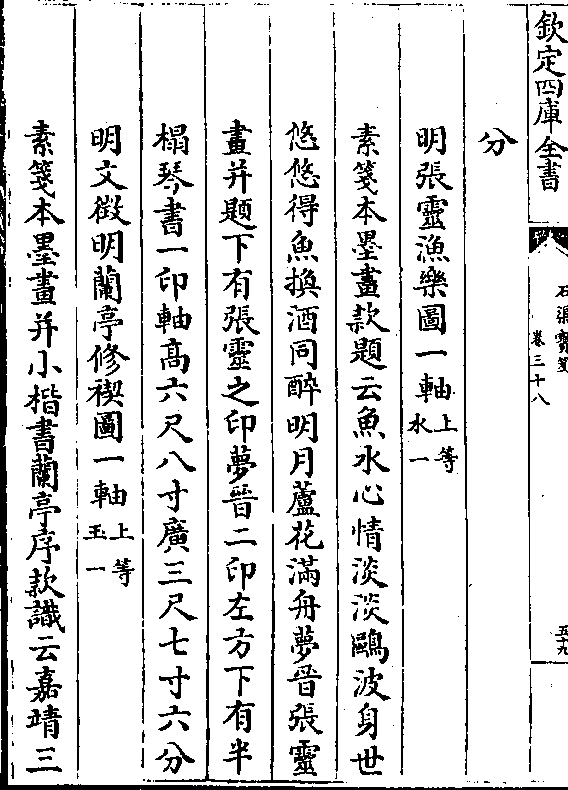 欽定四庫全書
石渠寳笈
卷三十八
五十九
分
明張靈漁樂圖一軸 上等 水一
素箋本墨畫款題云魚水心情淡淡鷗波身世
悠悠得魚換酒同醉明月蘆花滿舟夢晉張靈
畫并題下有張靈之印夢晉二印左方下有半
榻琴書一印軸高六尺八寸廣三尺七寸六分
明文徵明蘭亭修禊圖一軸 上等 玉一
素箋本墨畫并小楷書蘭亭序款識云嘉靖三